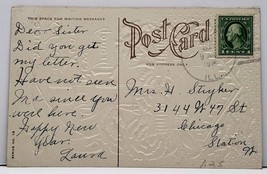 THIS SPACE FOR WRITING MESSAGES
Dear Sister
Did you get
my letter.
Have not seen
Ma since you
were here.
Happy New
Year.
Laura
Post Card
FOR ADDRESS ONLY
ILL.
Mrs. H Stryker
3144 W 47 St
Chicago
Station
1.25